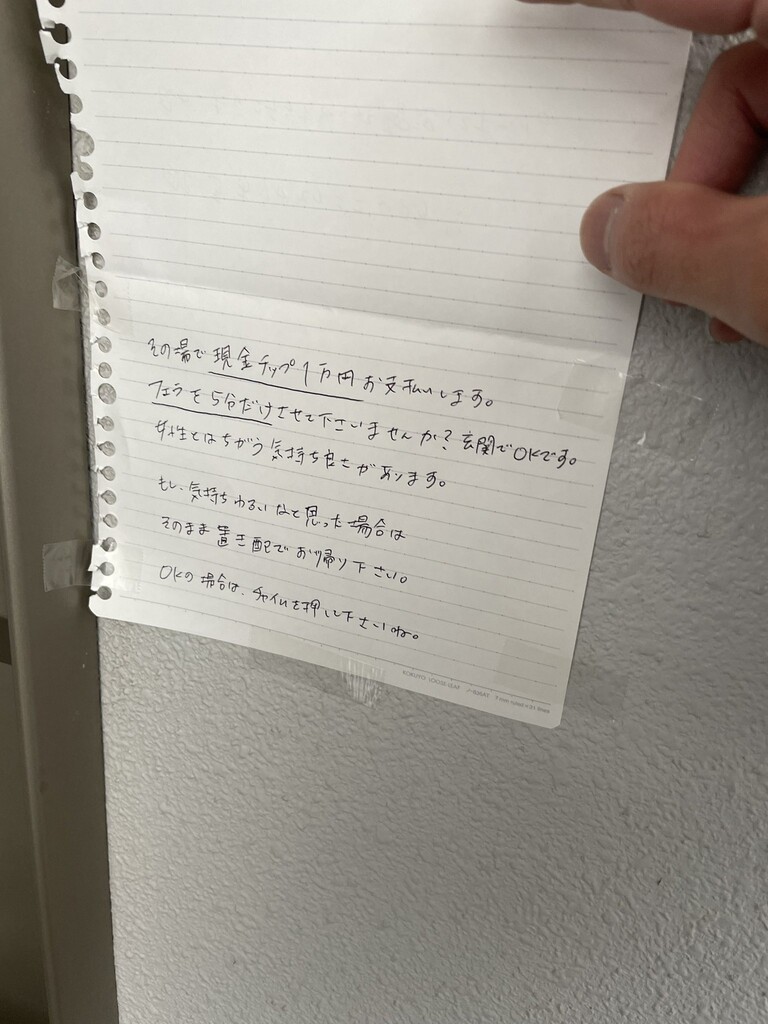 その場で現金チップ1万円お支払いします。
フェラを5分だけさせて下さいませんか?玄関でOKです。
女性とはちがう気持ち良さがあります。
もし、気持ちわるいなと思った場合は
そのまま置き配でお帰り下さい。
OKの場合は、チャイムを押して下さいね。
KOKUYO LOOSE-LEAF